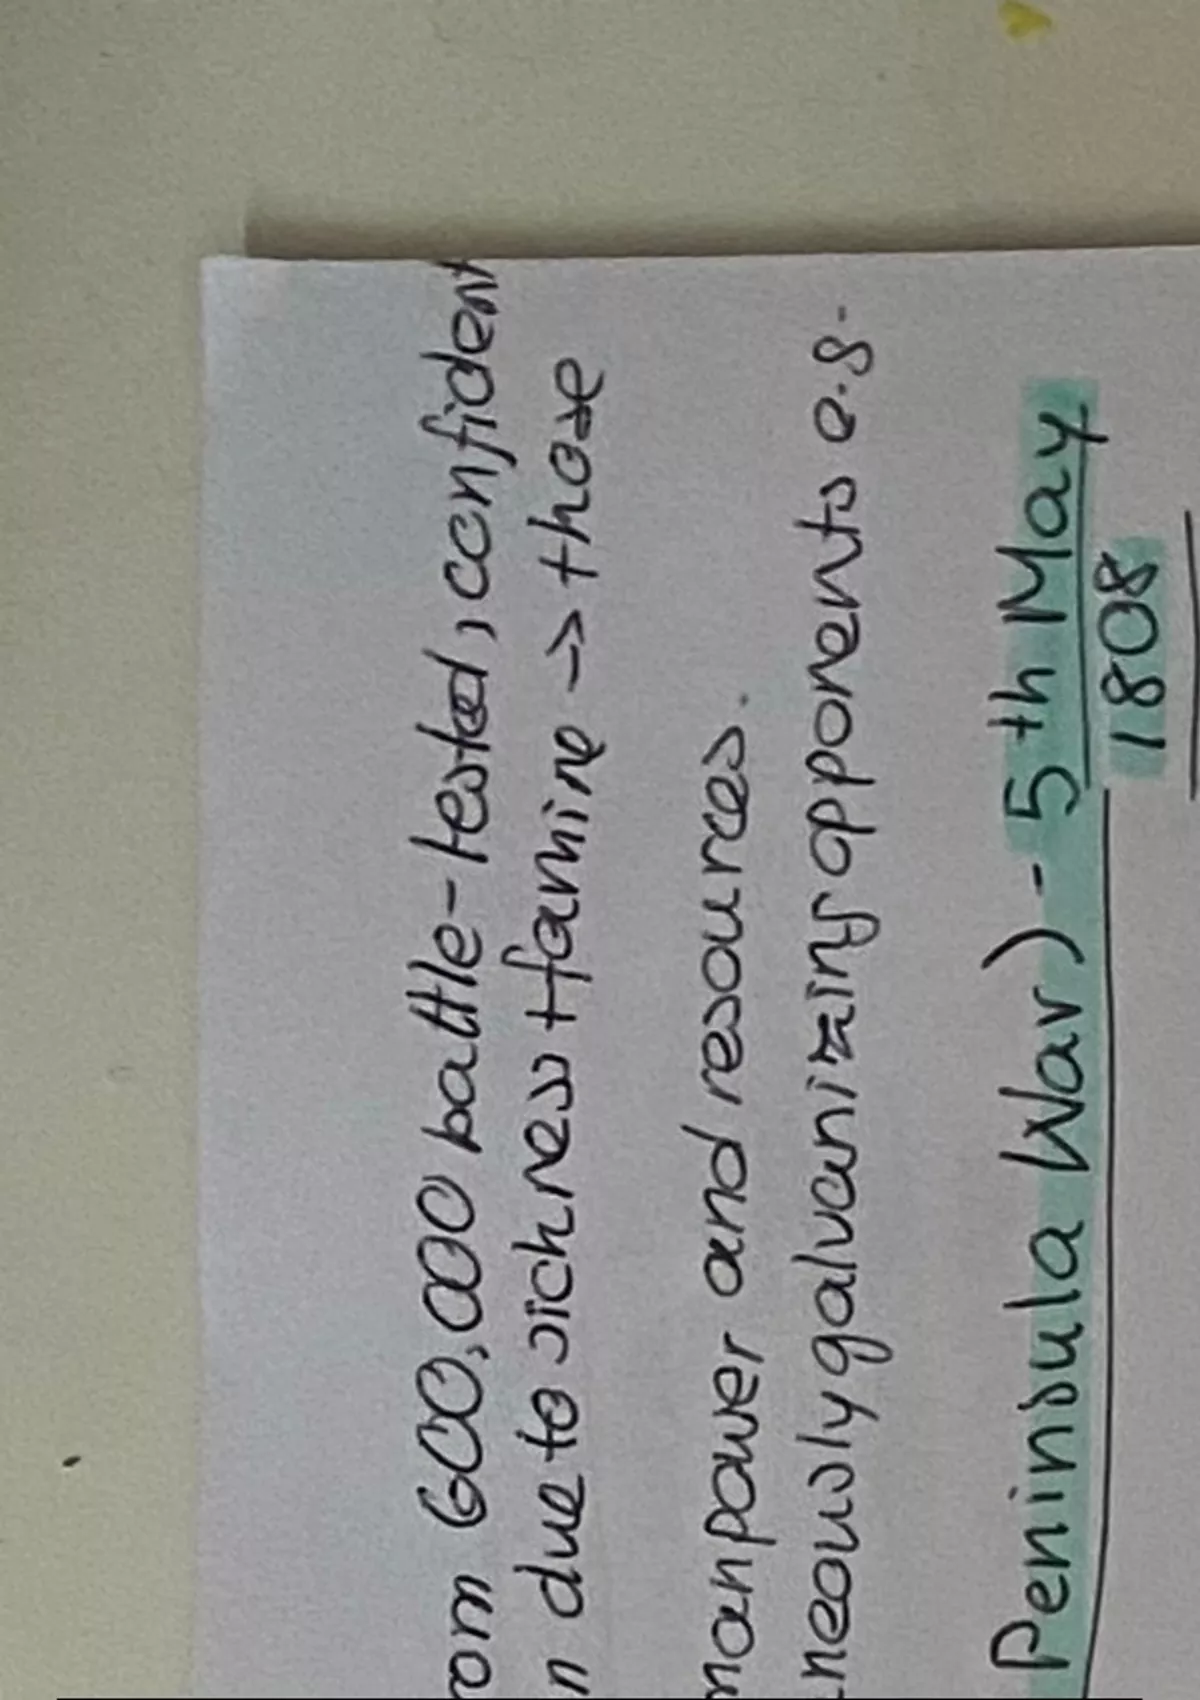 om 600,000 battle-tested, confident
n due to sickness + famine -> those
manpower and resources.
neously galvanizing opponents e.g.
Peninsula War) - 5th May
1808